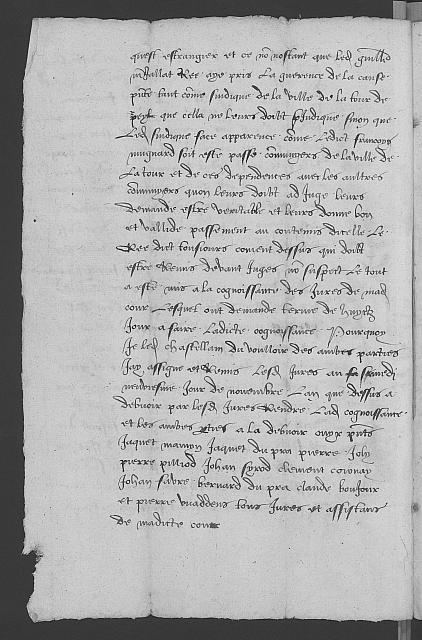 quest estrangier et ce nō nostant que led guilld
vuallat Ree aye pris La guerence de la cause
pnte tant cōme sindique de la ville de la tour de
peylz que cella ne leurs doibt p̄Judique sinon que
Led sindique face apparence cōme Ledict francoys
mugnard soit este passe cōmugyers de la ville de
La tour et de ces dependences avec les aultres
cōmugyers quon leurs doibt ad Juge leurs
demande estre veritable et leurs donne bon
et vallide passement au contenus dicelle Le
Ree dict tousiours comēt dessus qui doibt
estre Remis devant Juges nō suspect Le tout
a este mis a la cognoissance des Jures de mad
cour Lesquel ont demande terme de huyctz
Jour a faire Ladicte cognoissance Pourquoy
Je led chastellain du voulloir des ambes parties
Jay assigne et Remis Lesd Jures au
neufviesme Jour de novembre Lan que dessus a
debvoir par lesd Jures Rendre Lad cognoissance
et les ambes pties a la debvoir ouyr pnts
Jaquet mamon Jaquet du pra pierre Joly
pierre pilliod Johan syrod clement cornay
Johan favre bernard du pra claude boujour
et pierre vuaddens tous Jures et assistans
de madicte cour